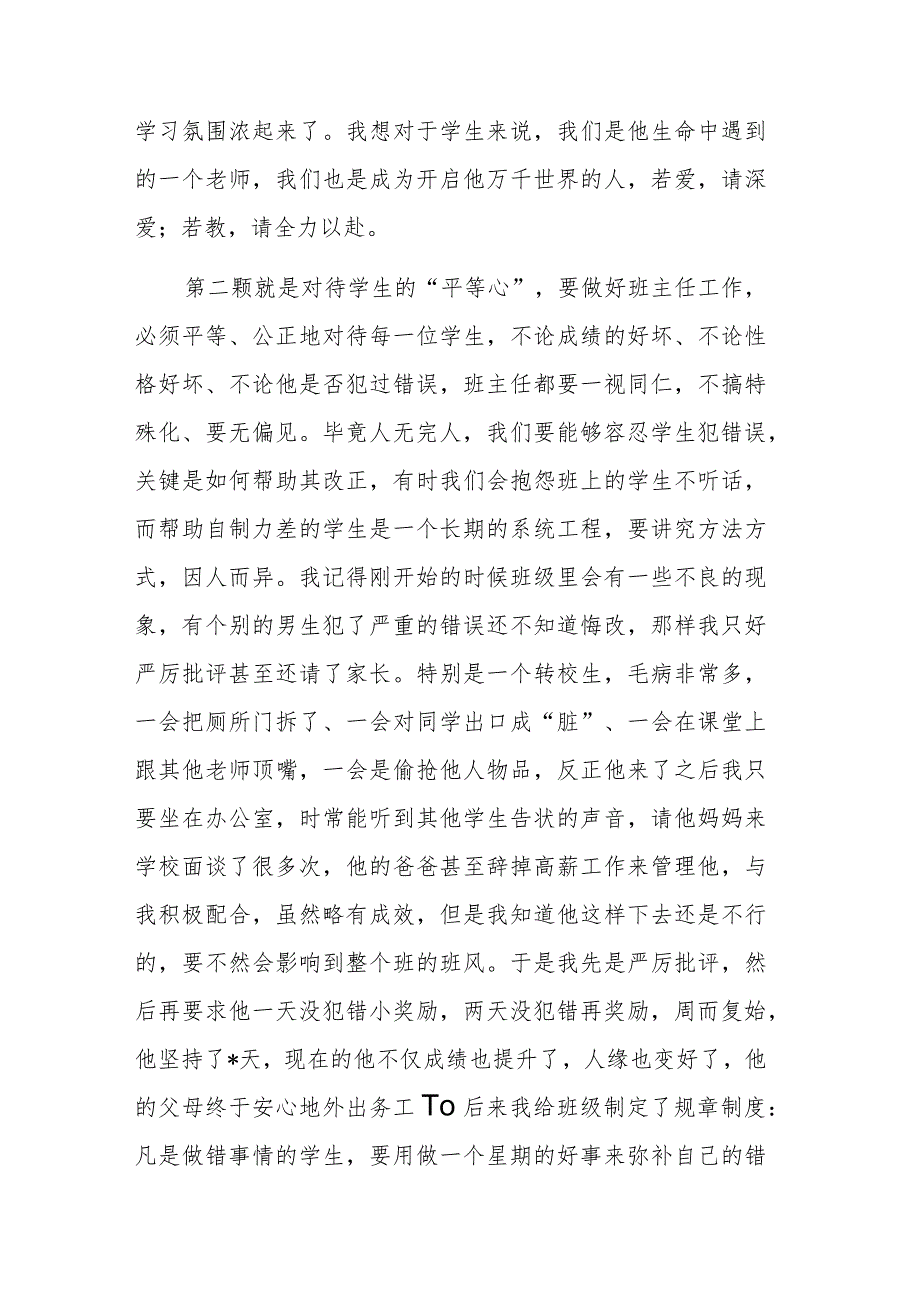 学习氛围浓起来了。我想对于学生来说，我们是他生命中遇到
的一个老师，我们也是成为开启他万千世界的人，若爱，请深
爱；若教，请全力以赴。
第二颗就是对待学生的“平等心”，要做好班主任工作，
必须平等、公正地对待每一位学生，不论成绩的好坏、不论性
格好坏、不论他是否犯过错误，班主任都要一视同仁，不搞特
殊化、要无偏见。毕竟人无完人，我们要能够容忍学生犯错误，
关键是如何帮助其改正，有时我们会抱怨班上的学生不听话，
而帮助自制力差的学生是一个长期的系统工程，要讲究方法方
式，因人而异。我记得刚开始的时候班级里会有一些不良的现
象，有个别的男生犯了严重的错误还不知道悔改，那样我只好
严厉批评甚至还请了家长。特别是一个转校生，毛病非常多，
一会把厕所门拆了、一会对同学出口成“脏”、一会在课堂上
跟其他老师顶嘴，一会是偷抢他人物品，反正他来了之后我只
要坐在办公室，时常能听到其他学生告状的声音，请他妈妈来
学校面谈了很多次，他的爸爸甚至辞掉高薪工作来管理他，与
我积极配合，虽然略有成效，但是我知道他这样下去还是不行
的，要不然会影响到整个班的班风。于是我先是严厉批评，然
后再要求他一天没犯错小奖励，两天没犯错再奖励，周而复始，
他坚持了*天，现在的他不仅成绩也提升了，人缘也变好了，他
的父母终于安心地外出务工To后来我给班级制定了规章制度：
凡是做错事情的学生，要用做一个星期的好事来弥补自己的错